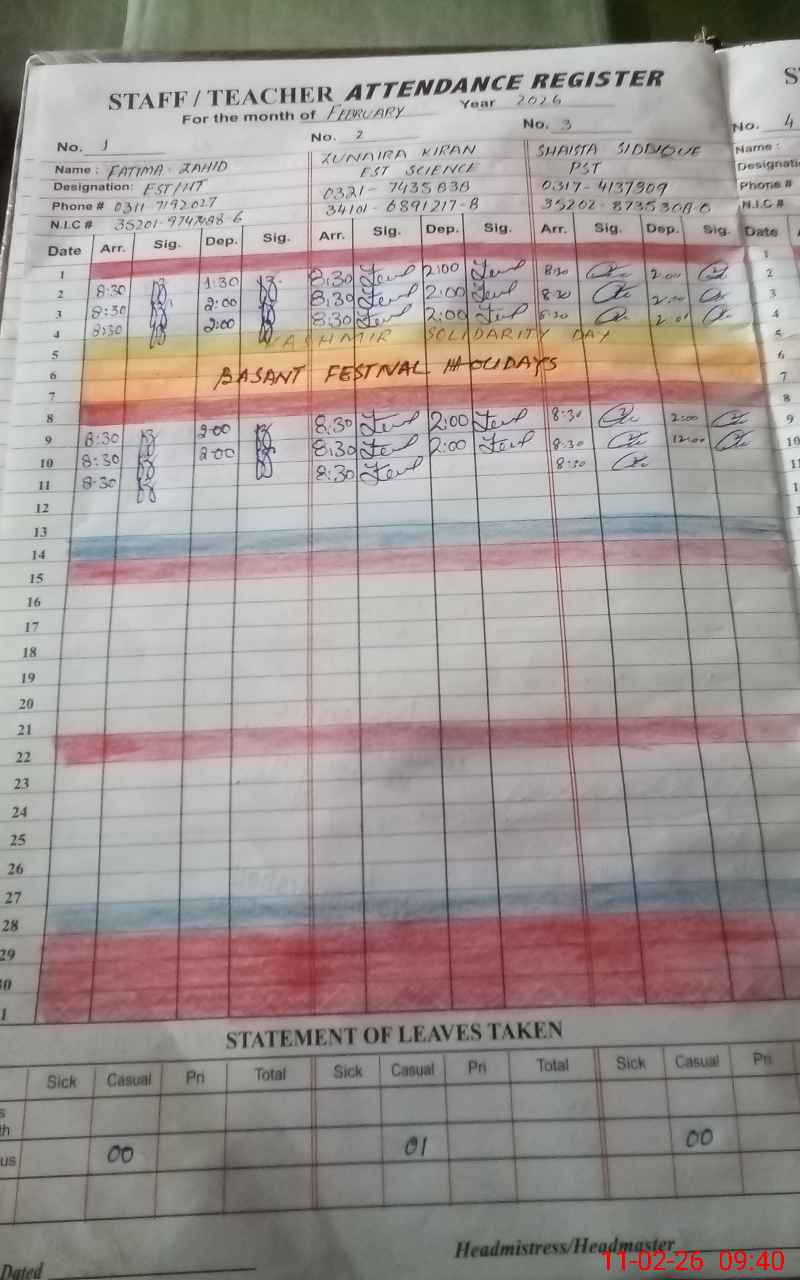 STAFF / TEACHER ATTENDANCE REGISTER
For the month of FEBRUARY Year 2026
No. 1 No. 2 No. 3 No. 4
Name : FATIMA ZAHID ZUNAIRA KIRAN SHAISTA SIDDIQUE Name :
Designation: EST/HT EST SCIENCE PST
Phone # 0311-7192027 0321-7435838 0317-4137909 Phone #
N.I.C # 34101-6891217-8 N.I.C #
Date Arr. Sig. Dep. Sig. Arr. Sig. Dep. Sig. Arr. Sig. Dep. Sig. Date
1 1
2 8:30 1:30 8:30 2:00 8:30 2:00 2
3 8:30 2:00 8:30 2:00 8:30 2:00 3
4 8:30 2:00 8:30 2:00 8:30 2:00 4
5 KASHMIR SOLIDARITY DAY 5
6 BASANT FESTIVAL HOLIDAYS 6
7 7
8 8
9 8:30 2:00 8:30 2:00 8:30 2:00 9
10 8:30 2:00 8:30 2:00 8:30 12:00 10
11 8:30 8:30 8:30
12
13
14
15
16
17
18
19
20
21
22
23
24
25
26
27
28
29
STATEMENT OF LEAVES TAKEN
Sick Casual Pri Total Sick Casual Pri Total Sick Casual Pri
00 01 00
Headmistress/Headmaster
Dated
11-02-26 09:40